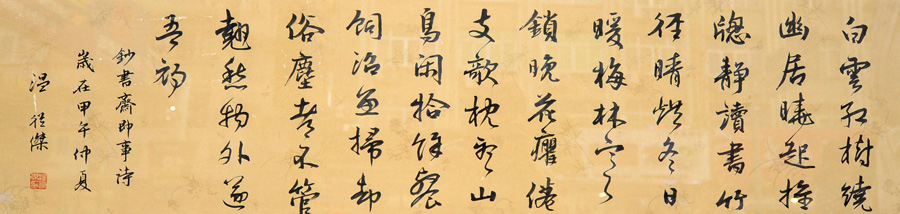 白雲紅樹繞
幽居曉起推
牕靜讀書竹
徑晴烘冬日
暖梅林
鎖晚花癯倦
支欹枕看山
鳥閑拾餘餐
飼沼魚掃却
俗塵都不管
翹然物外遂
吾初
鈔書齋即事詩
歲在甲午仲夏
温傑